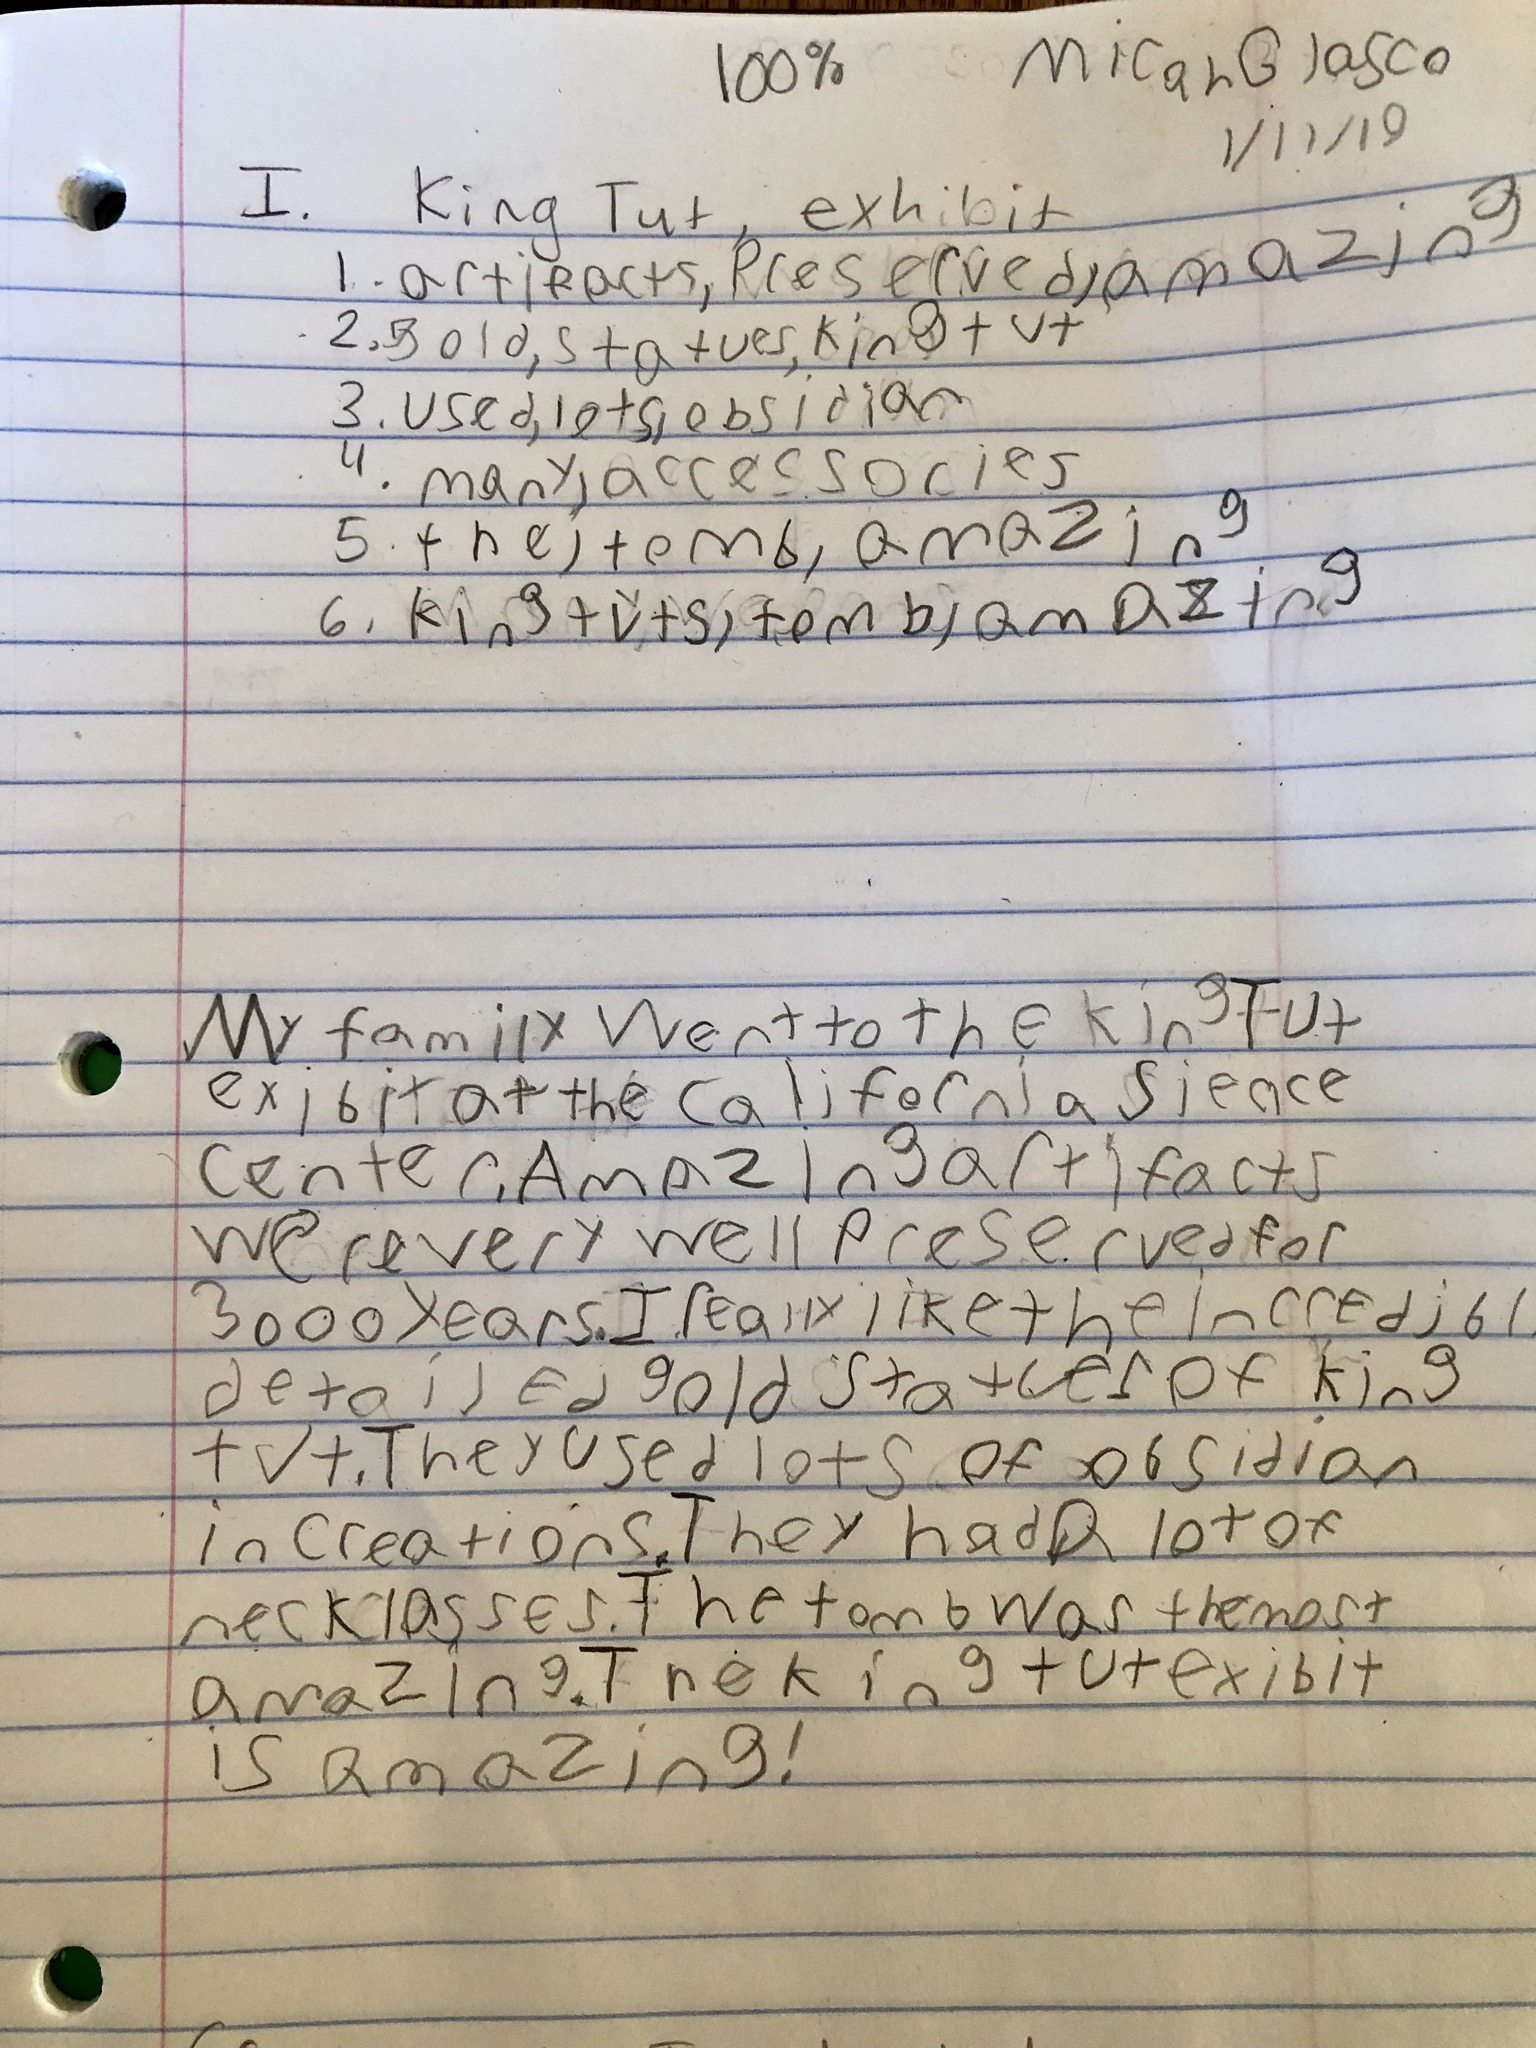 100% Micah Glasco
1/11/19
I. King Tut, exhibit
1. artifacts, Preserved, amazing
2. gold, statues, king tut
3. used, lots, obsidian
4. many, accessories
5. the, tomb, amazing
6. king tuts, tomb, amazing
My family Went to the king Tut
exibit at the California Sience
Center. Amazing artifacts
were very well preserved for
3000 years. I really like the incredibl
detailed gold statues of king
tut. They used lots of obsidian
in creations. They had a lot of
necklasses. The tomb was the most
amazing. The king tut exibit
is amazing!